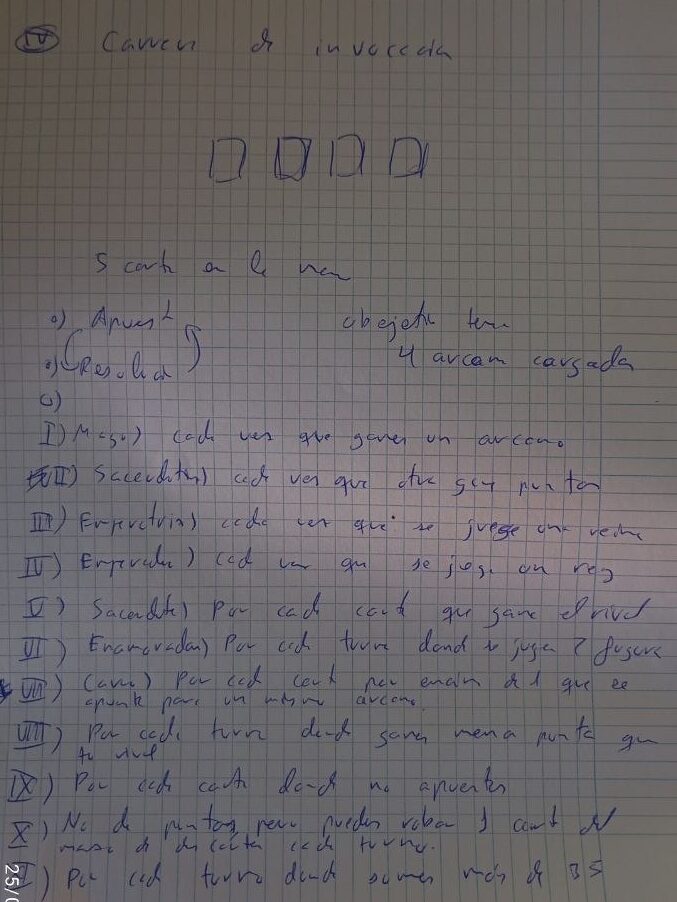 IV Carrera de invocada
5 cart en la mesa
a) Apuest
objetivo tener
b) Resolución
4 arcam cargada
c)
I) Mago) cada vez que ganes un arcano
II) Sacerdotisa) cada vez que otro gan puntos
III) Emperatriz) cada vez que se juege una reina
IV) Emperador) cad vez que se juega un rey
V) Sacerdote) Por cada carta que gane el rival
VI) Enamorados) Por cada turno donde se juegan 2 figuras
VII) Carro) Por cad cart por encima de 1 que se
apueste para un mismo arcano.
VIII) Por cada turno donde ganes menos puntos que
tu rival
IX) Por cada carta donde no apuestes
X) No da puntos, pero puedes robar 1 carta del
mazo de descartes cada turno.
I) Por cada turno donde sumes más de 35
25/0